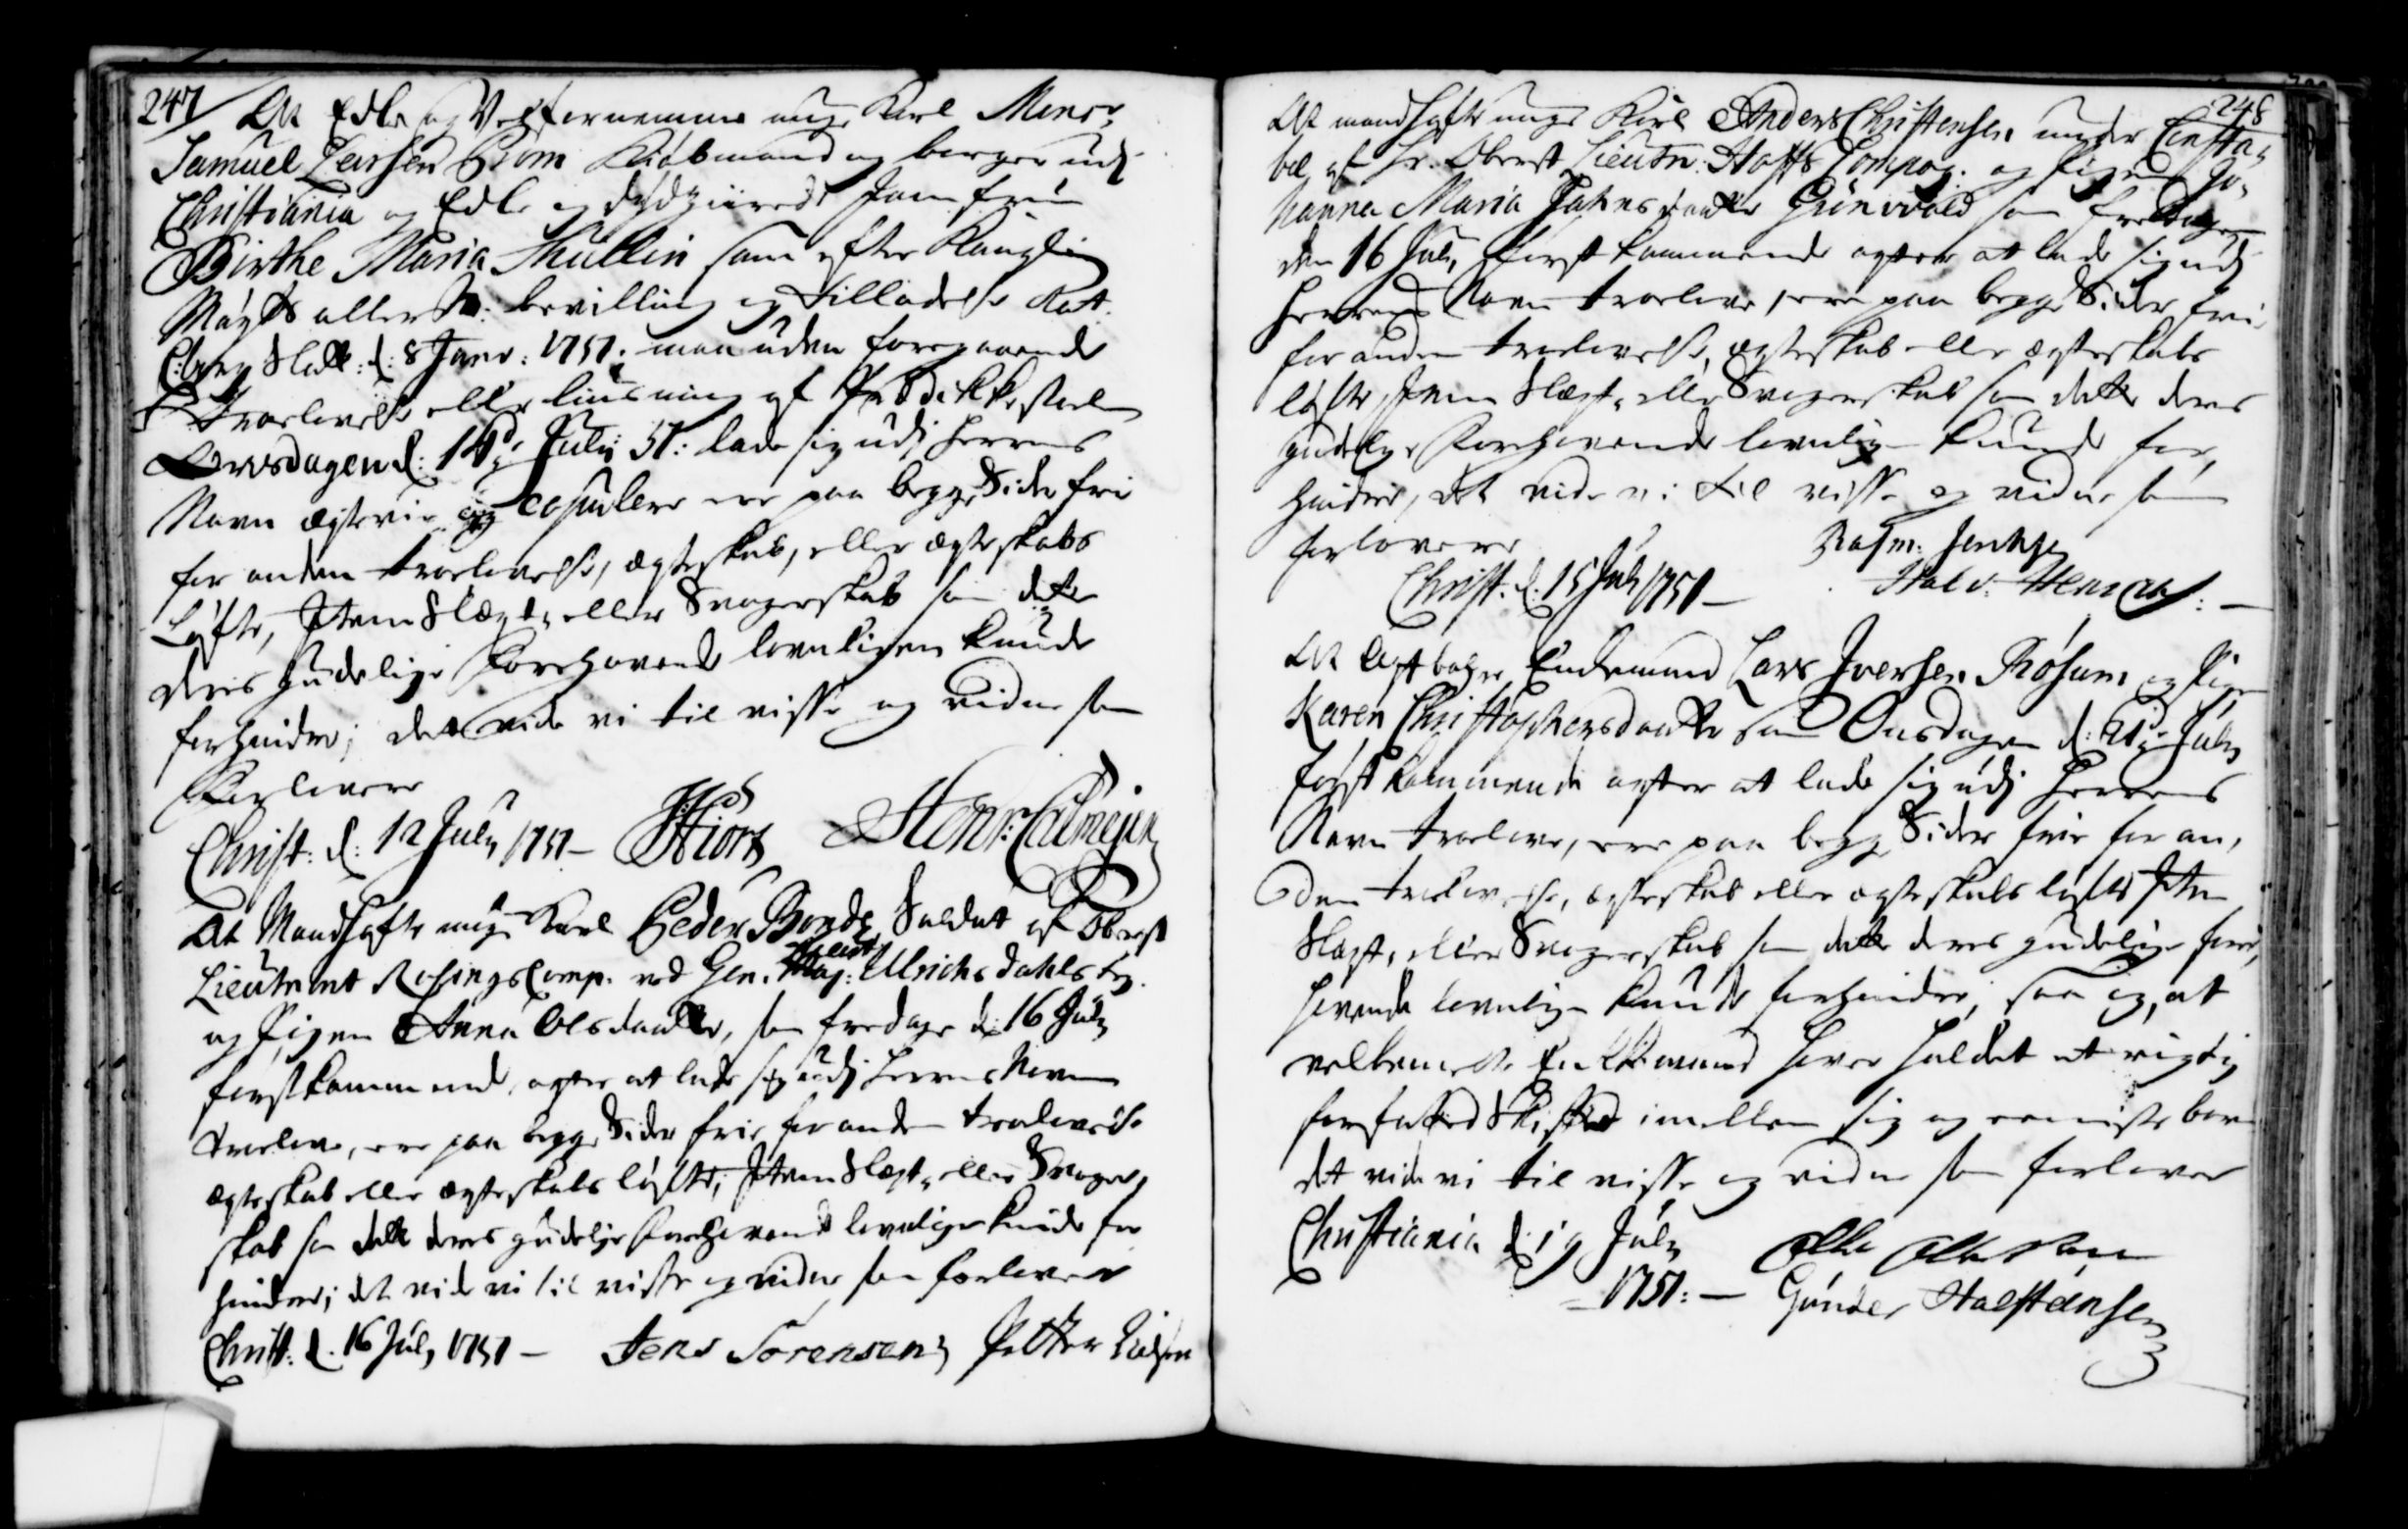 247
At Edle og Velfornemme unge Karl Monsr:
Samuel Larsen Kiøbmand og borger udj
Christiania og Edle og dydziirede Jomfrue
Birthe Maria Mullin som efter Kongelig
Mayts allern: bevilling og Tilladelse dat.
C:borg Slott: d: 8 Janv: 1751: maa uden foregaaende
Trolovelse eller liusning af Prædikkestolen
Onsdagen d: 14de July 51: lade sig udj Herrens
Navn ægtevie og copulere ere paa begge Sider fri
for anden trolovelse, ægteskab, eller ægteskabs
Løfte, Item Slægt- eller Svogerskab som dette
deres gudelige Forehavende lovligen kunde
forhindre; det vide vi til visse og vidne som
Forlovere
Christ: d: 12 July 1751 – Hiort Henr: Calmejer
At Mandhafte unge Karl Peder Bonde Soldat af Oberst
Lieutnant Rosings Comp. ved Gen. Lieut: Ulrichsdahls Reg.
og Pigen Anna Olsdaatter, som fredagen d: 16 July
førstkommende agter at lade sig udj Herrens Navn
trolove, ere paa begge Sider frie for anden trolovelse
ægteskab eller ægteskabs løfte, Item Slægt- eller Svoger-
skab som dette deres gudelige Forehavende lovligen kunde for
hindre; det vide vi til visse og vidne som forlovere
Christ: d. 16 July 1751 – Jens Sørensen Petter Nielsen
248
At mandhafte unge Karl Anders Christensen under Consta-
bel af Hr. Oberst Lieutn: Hoffs Compag: og Pigen Jo-
hanna Maria Johnsdaatter Grünvald som fredagen
den 16 July først kommende agter at lade sig udj
Herrens Navn trolove, ere paa begge Sider fri
for anden trolovelse, ægteskab eller ægteskabs
løfte, Item Slægt- eller Svogerskab som dette deres
gudelige Forehavende lovlig kunde for-
hindre, det vide vi til visse og vidne som
forlovere Rasm: Jensen
Christ. d. 15 July 1751 –
At Agtbahre Enkemand Lars Iversen Røsum og Pigen
Karen Christophersdaatter som Onsdagen d: 21de July
først kommende agter at lade sig udj Herrens
Navn trolove, ere paa begge Sider frie for an-
den trolovelse, ægteskab eller ægteskabs løfte Item
Slægt- eller Svogerskab som dette deres gudelige fore-
havende lovlig kunde forhindre, saa og, at
velbemelte Enkkemand haver holdet et rigtig
forfatted Skifte imellem sig og sine børn
det vide vi til visse og vidne som forlover
Christiania d: 19 July
1751: – Gunder Halstensen